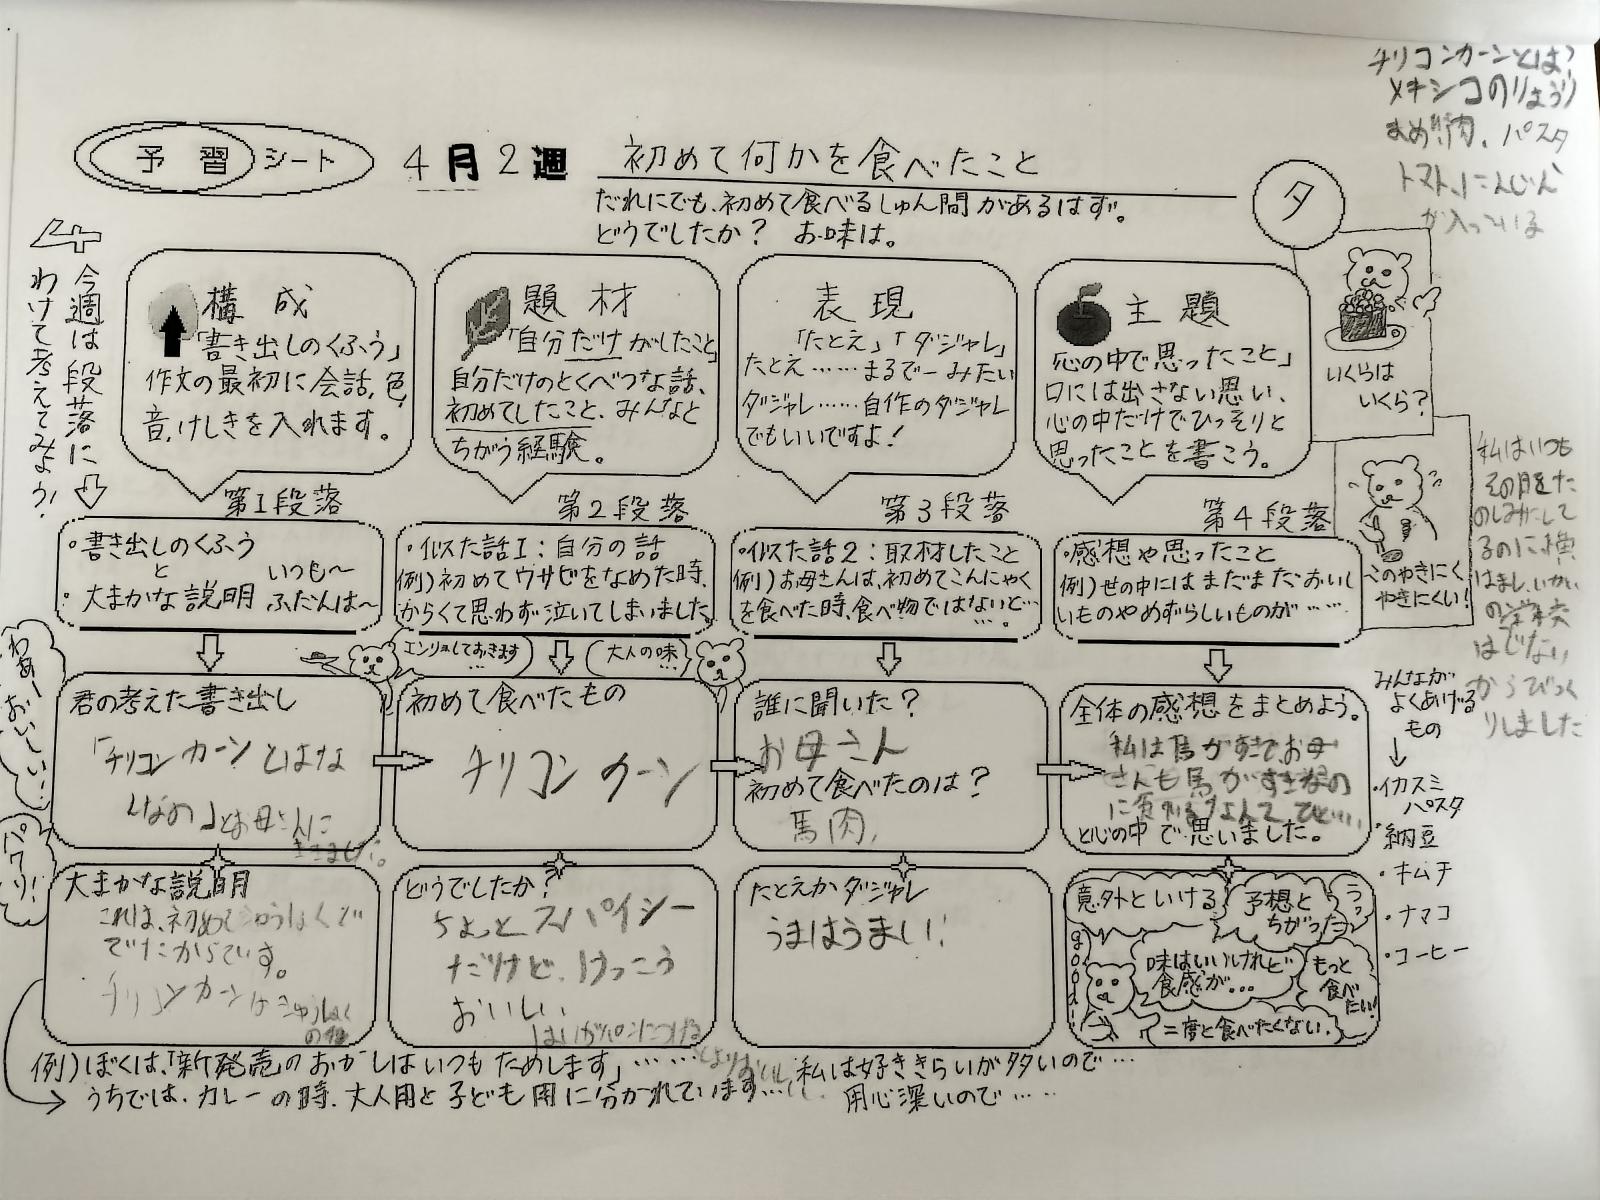 チリコンカーンとは?
メキシコのりょうり
まめ、肉、パスタ
トマト、にんじん
が入っている
予習シート
4月2週
初めて何かを食べたこと
だれにでも、初めて食べるしゅん間があるはず。
どうでしたか? お味は。
タ
今週は段落に
わけて考えてみよう!
構成
「書き出しのくふう」
作文の最初に会話,色,
音,けしきを入れます。
題材
「自分だけがしたこと」
自分だけのとくべつな話、
初めてしたこと、みんなと
ちがう経験。
表現
「たとえ」「ダジャレ」
たとえ……まるでーみたい
ダジャレ……自作のダジャレ
でもいいですよ!
主題
「心の中で思ったこと」
口には出さない思い、
心の中だけでひっそりと
思ったことを書こう。
いくらは
いくら?
このやきにく
やきにくい!
私はいつも
その日をた
のしみにして
るのに横
はま
の学校
はでない
からびっく
りしました
第1段落
・書き出しのくふう
と
・大まかな説明
いつも〜
ふだんは〜
第2段落
・似た話1:自分の話
例)初めてワサビをなめた時、
からくて思わず泣いてしまいました。
第3段落
・似た話2:取材したこと
例)お母さんは、初めてこんにゃく
を食べた時、食べ物ではないと…
第4段落
・感想や思ったこと
例)世の中にはまだまだおいし
いものやめずらしいものが……
わあー
おいしい…
パクリ!
エンリョしておきます…
大人の味…
君の考えた書き出し
「チリコンカーンとはな
んなの」とお母さんに
ききました。
初めて食べたもの
チリコンカーン
誰に聞いた?
お母さん
初めて食べたのは?
馬肉、
全体の感想をまとめよう。
私は馬がすきでお母
さんも馬がすきなの
に食べるなんてひどい
と心の中で思いました。
大まかな説明
これは、初めてきゅうしょくで
でたからです。
チリコンカーンはきゅうしょく
の
どうでしたか?
ちょっとスパイシー
だけど、けっこう
おいしい
はいがパンにつける
とよりおいし
たとえかダジャレ
うまはうまい!
意外といける
予想と
ちがった
味はいいけれど
食感が…
もっと
食べ
たい!
二度と食べたくない.
みんなが
よくあげる
もの
↓
・イカスミ
パスタ
・納豆
・キムチ
・ナマコ
・コーヒー
例)ぼくは、「新発売のおかしはいつもためします」……
私は好ききらいが多いので…
うちでは、カレーの時、大人用と子ども用に分かれています…
用心深いので……